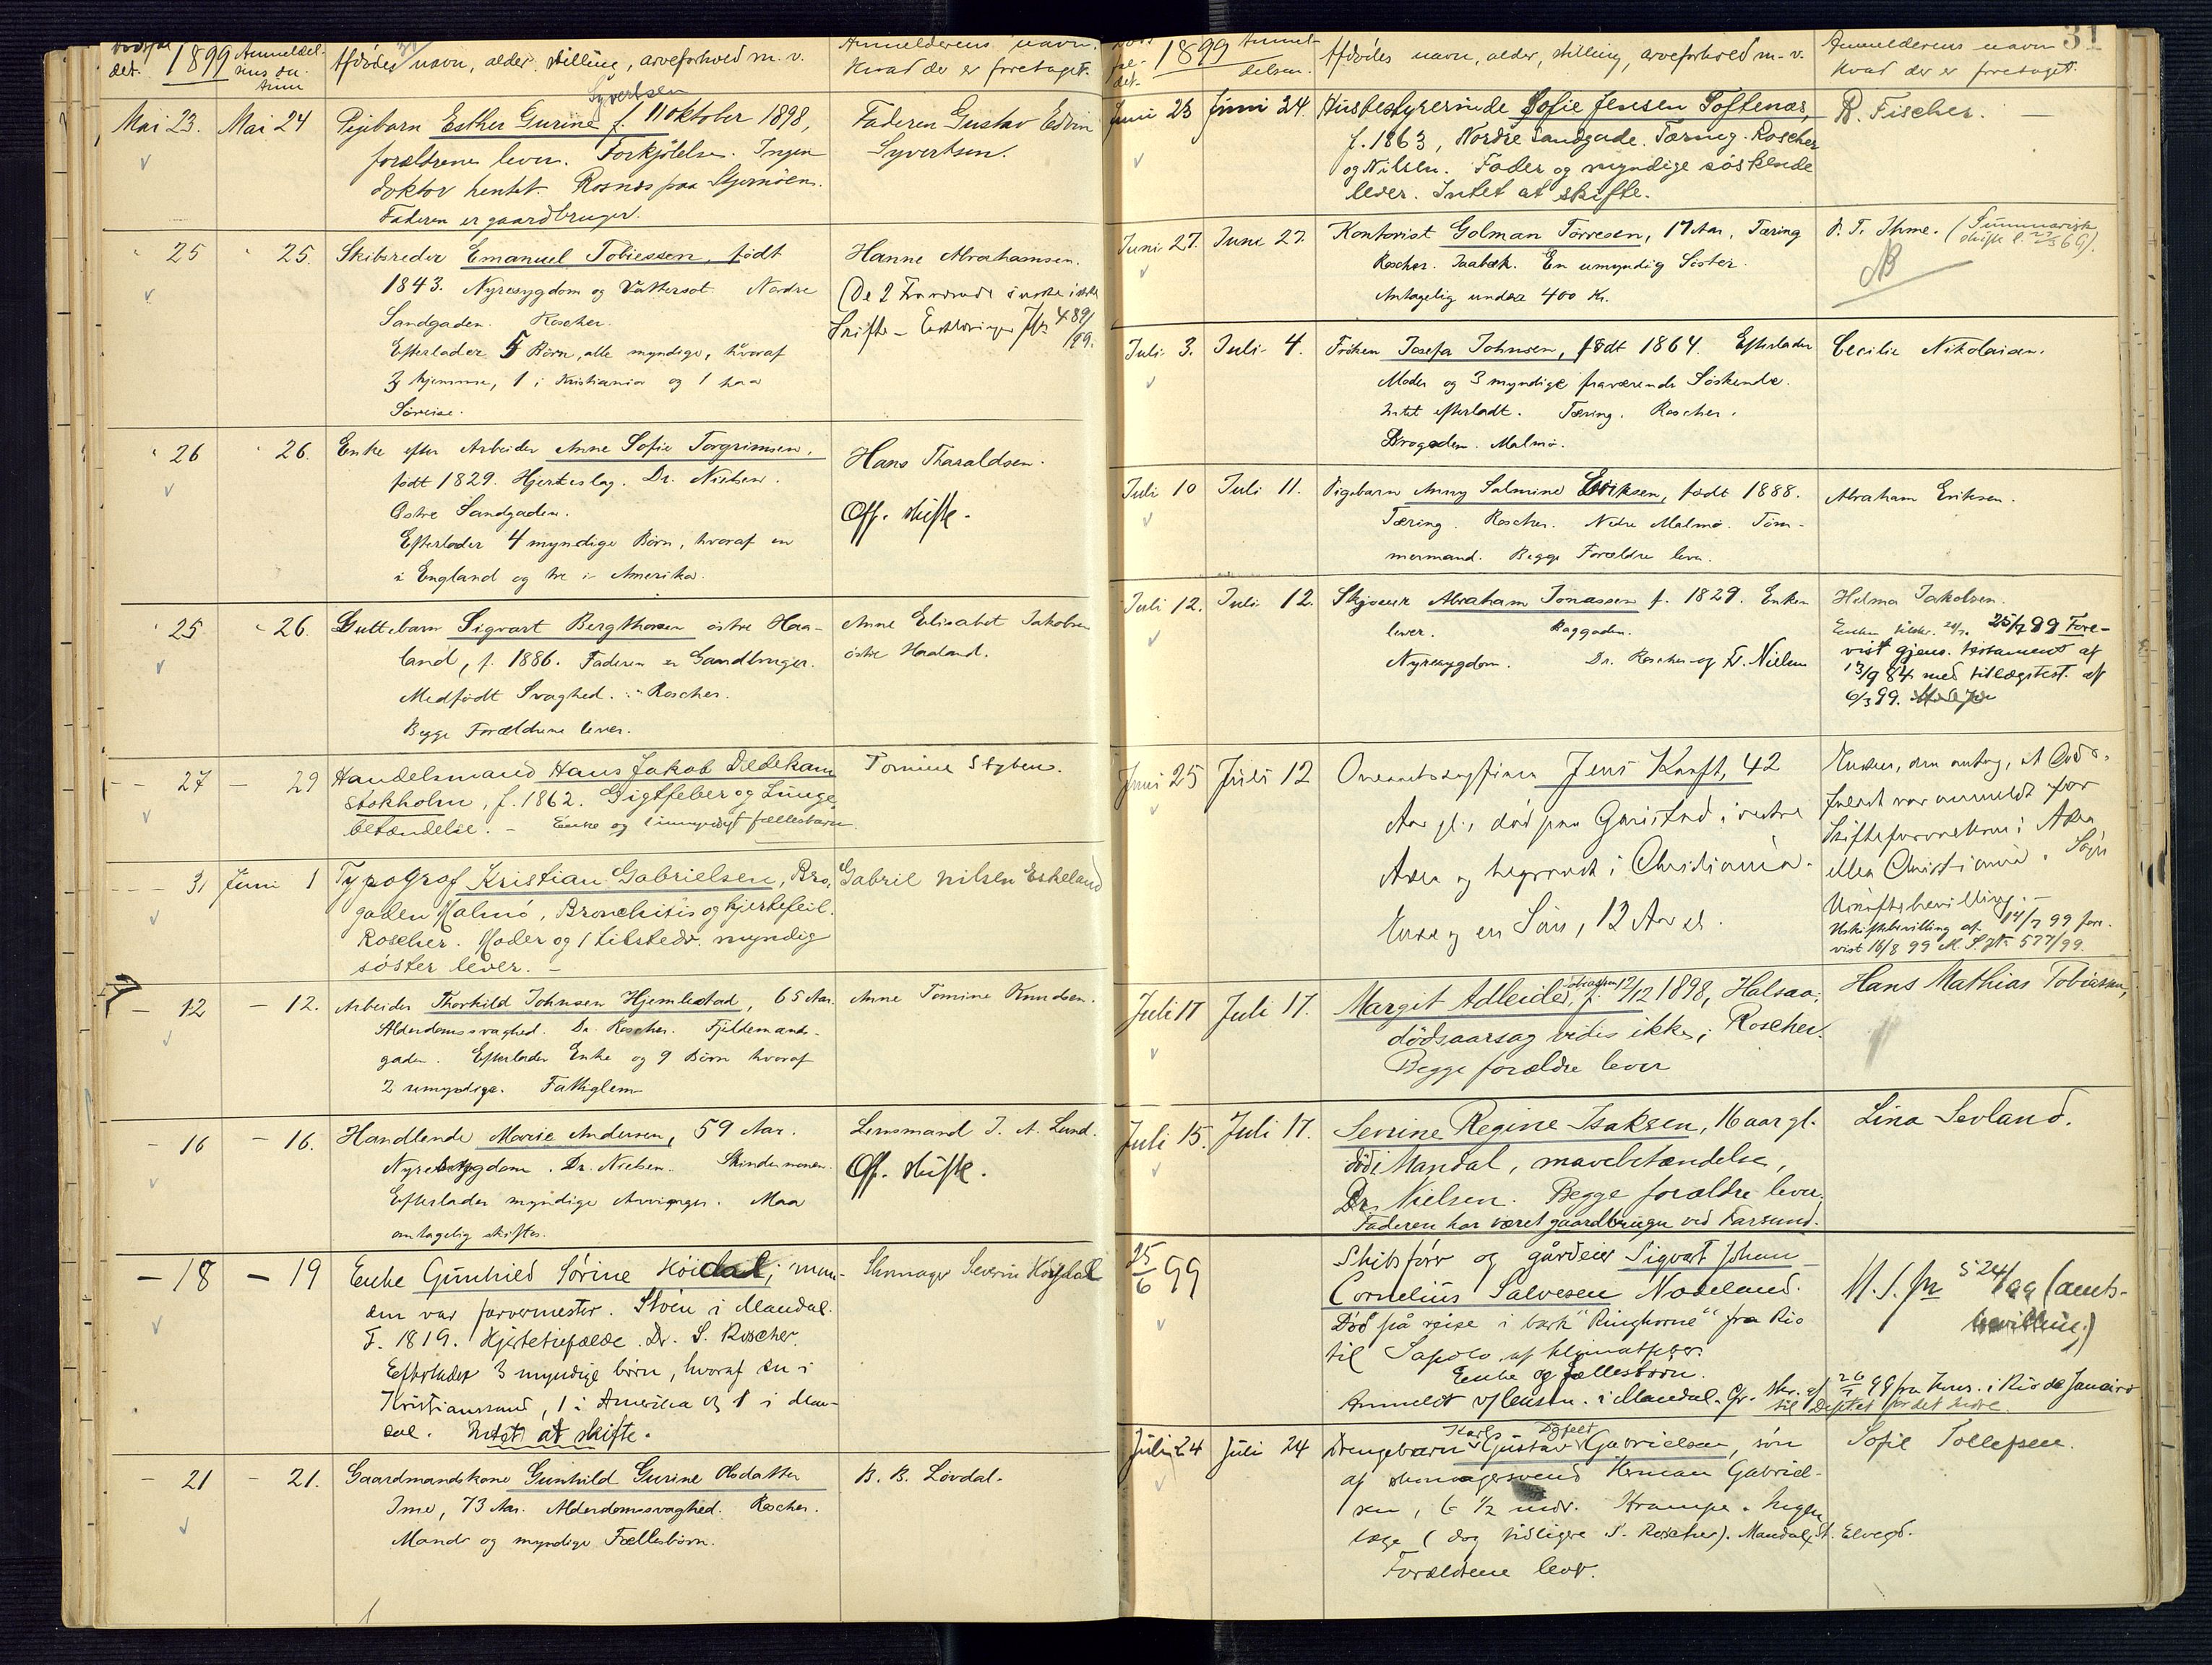 1899 Anmeldel-
det.
Afdödes navn, alder, stilling, arveforhold m. v.
Anmelderens navn.
Hvad der er foretaget.
Syvertsen
Mai 23. Mai 24 Pigebarn Esther Gurine f. 11 oktober 1898,
forældrene lever. Forkjölelse. Ingen
doktor hentet. Rosnes paa Skjernöen.
Faderen er gaardbruger.
Faderen Gustav Edvin
Syvertsen.
" 25 " 25. Skibsreder Emanuel Tobiessen, födt
1843. Nyresygdom og Vattersot Nordre
Sandgaden. Roscher.
Efterlader 5 Börn, alle myndige, hvoraf
3 hjemme, 1 i Kristiania og 1 paa
Söreise.
Hanne Abrahamsen.
Skifte – Erklæringer Jr 489/
99.
" 26 " 26. Enke efter Arbeider Anne Sofie Torgrimsen,
födt 1829. Hjerteslag. Dr. Nielsen.
Östre Sandgaden.
Efterlader 4 myndige Börn, hvoraf en
i England og tre i Amerika.
Hans Tharaldsen.
Off. skifte.
" 25 " 26. Guttebarn Sigvart Bergthorsen östre Haa-
land, f. 1886. Faderen er Gaardbruger.
Medfödt Svaghed. Roscher.
Begge Forældrene lever.
Anne Elisabet Jakobsen
östre Haaland.
– 27 – 29 Handelsmand Hans Jakob Dedekam
Stokholm, f. 1862. Gigtfeber og Lunge-
betændelse. – Enke og 1 umyndigt fællesbarn
Tomine Styhen.
– 31 Juni 1 Typograf Kristian Gabrielsen, Bro-
gaden Malmö, Bronchitis og hjertefeil.
Roscher. Moder og 1 tilstedev. myndig
söster lever. –
Gabriel Nilsen Eskeland
– 12 – 12. Arbeider Thorkild Johnsen Hjemlestad, 65 Aar.
Alderdomssvaghed. Dr. Roscher. Fjeldemands-
gaden. Efterlader Enke og 9 Börn hvoraf
2 umyndige. Fattiglem
Anne Tomine Knudsen.
– 16 – 16. Handlende Marie Andersen, 59 Aar.
Nyresygdom. Dr. Nielsen.
Efterlader myndige Arvinger. Maa
antagelig skiftes.
Lensmand J. A. Lund.
Off. skifte.
– 18 – 19 Enke Gunhild Sörine Höidal; man-
den var farvermester. Stöen i Mandal.
F. 1819. Hjertetilfælde. Dr. S. Roscher.
Efterlader 3 myndige börn, hvoraf en i
Kristianssand, 1 i Amerika og 1 i Man-
dal. Intet at skifte.
Skomager Severin Höydal
– 21 – 21. Gaardmandskone Gunhild Gurine Olsdatter
Ime, 73 Aar. Alderdomssvaghed. Roscher.
Mand og myndige Fællesbörn.
B. B. Lövdal.
31
1899
delsen.
Afdödes navn, alder, stilling, arveforhold m. v.
Anmelderens navn
Hvad der er foretaget.
Juni 23 Juni 24. Husbestyrerinde Sofie Jensen Toftenæs,
f. 1863, Nordre Sandgade. Tæring. Roscher
og Nilsen. Fader og myndige söskende
lever. Intet at skifte.
B. Fischer. –
Juni 27. Juni 27. Kontorist Golman Törresen, 17 Aar, Tæring
Roscher. En umyndig Söster.
Antagelig under 400 Kr.
P. T. Ihme. (Summarisk
Juli 3. Juli 4. Fröken Josefa Johnsen, födt 1864. Efterlader
Moder og 3 myndige fraværende Söskende.
Intet efterladt. Tæring. Roscher.
Brogaden. Malmö.
Cecilie Nikolaisen.
Juli 10 Juli 11. Pigebarn Anny Salmine Eriksen, födt 1888.
Tæring. Roscher. Nedre Malmö. Töm-
mermand. Begge Forældre lever.
Abraham Eriksen.
Juli 12. Juli 12. Abraham Jonassen f. 1829. Enken
lever.
Nyresygdom. Dr. Roscher og Dr. Nielsen
Helma Jakobsen.
25/7 99 Fore-
vist gjens. testament af
13/9 84 med tillægstest. af
6/3 99.
Juni 25 Juli 12 Jens Krafft, 42
Aar gl., död paa Gaustad i vestre
Aker og begravet i Christiania.
Enke og en Sön, 12 Aar gl.
Enken, den antog, at Döds-
faldet var anmeldt for
Skifteforvalteren i Aker
eller Christiania. Sögt
Uskiftebevilling. –
Uskiftebevilling af 14/7 99 fore-
vist 16/8 99 577/99.
Juli 17 Juli 17. Margit Adleide Tobiassen, f. 12/12 1898, Halsaa;
dödsaarsag vides ikke; Roscher.
Begge forældre lever
Hans Mathias Tobiassen,
Juli 15. Juli 17. Sevrine Regine Isaksen, 16 aar gl.
död i Mandal, mavebetændelse,
Dr. Nielsen. Begge forældre lever.
Faderen har været gaardbruger ved Farsund.
Lina Sevland.
25/6 99 Skibsförer og gårdeier Sigvart Johan
Cornelius Salvesen Nodeland.
Död på reise i bark "Ringhorne" fra Rio
til Sapelo af klimatfeber.
Enke og fællesbörn.
Anmeldt v/ lensm. i Mandal. Gr. skr. af 26/7 99 fra kons. i Rio de Janeiro
til Dep.tet for det Indre.
M. S. jr 524/99 (amts-
bevilling)
Juli 24 Juli 24 Drengebarn Karl Gustav Gabrielsen, sön
af skomagersvend Herman Gabriel-
sen, 6 1/2 mdr. Krampe. Ingen
læge (dog tidligere S. Roscher). Mandal, St. Elvegd.
Forældrene lever.
Sofie Tollefsen.